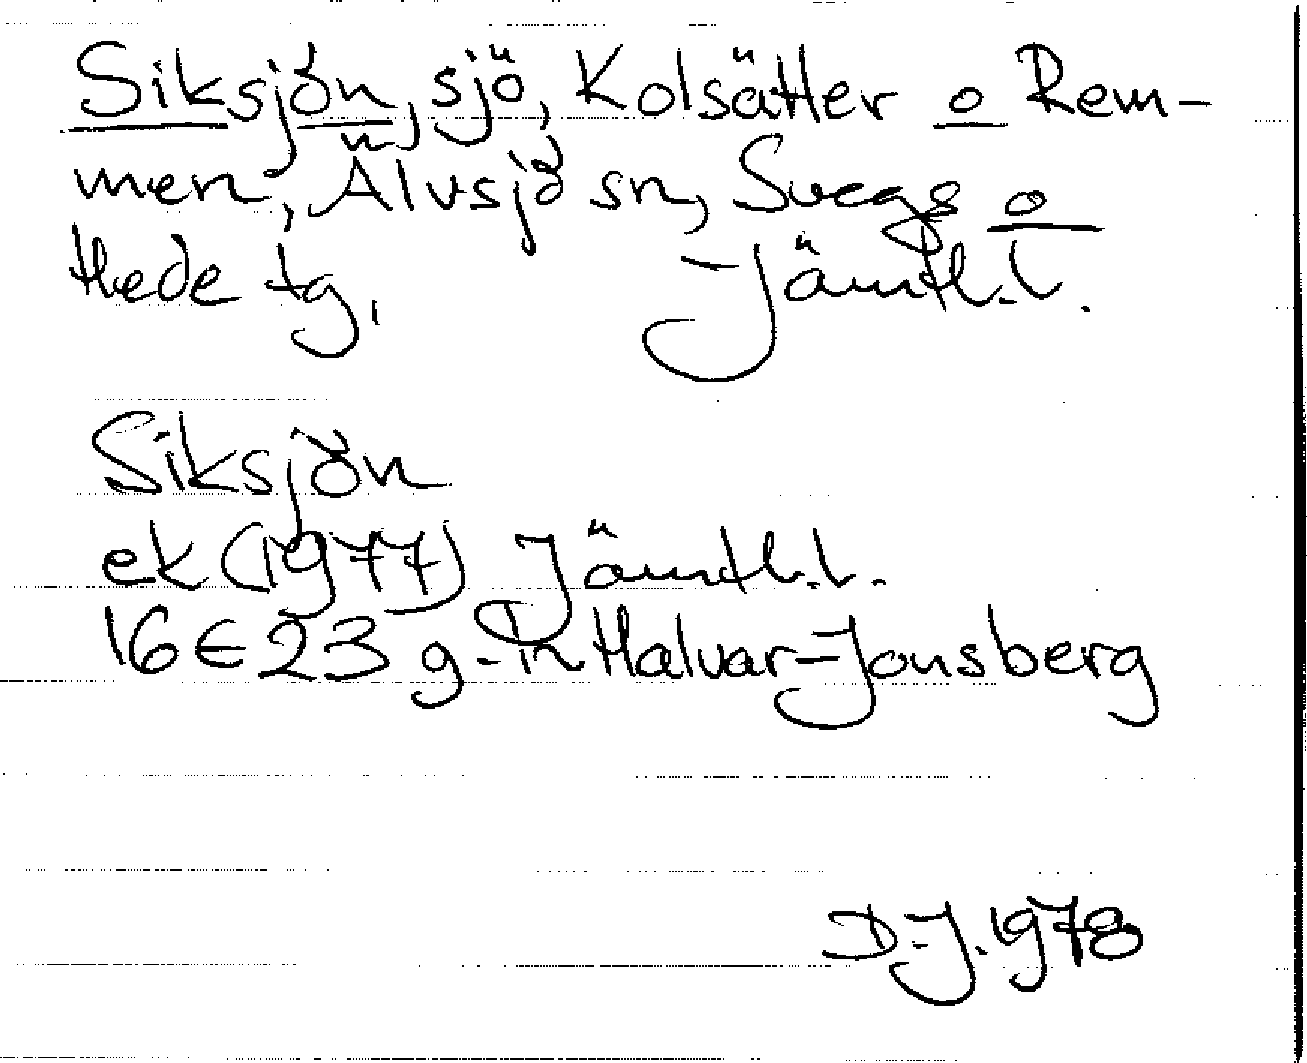 Siksjön, sjö, Kolsätter o Rem-
men, Älvsjö sn, Svegs o
Hede tg, Jämtl. l.
Siksjön
ek (1977) Jämtl. l.
16E23 g-h Halvar-Jonsberg
D.J. 1978